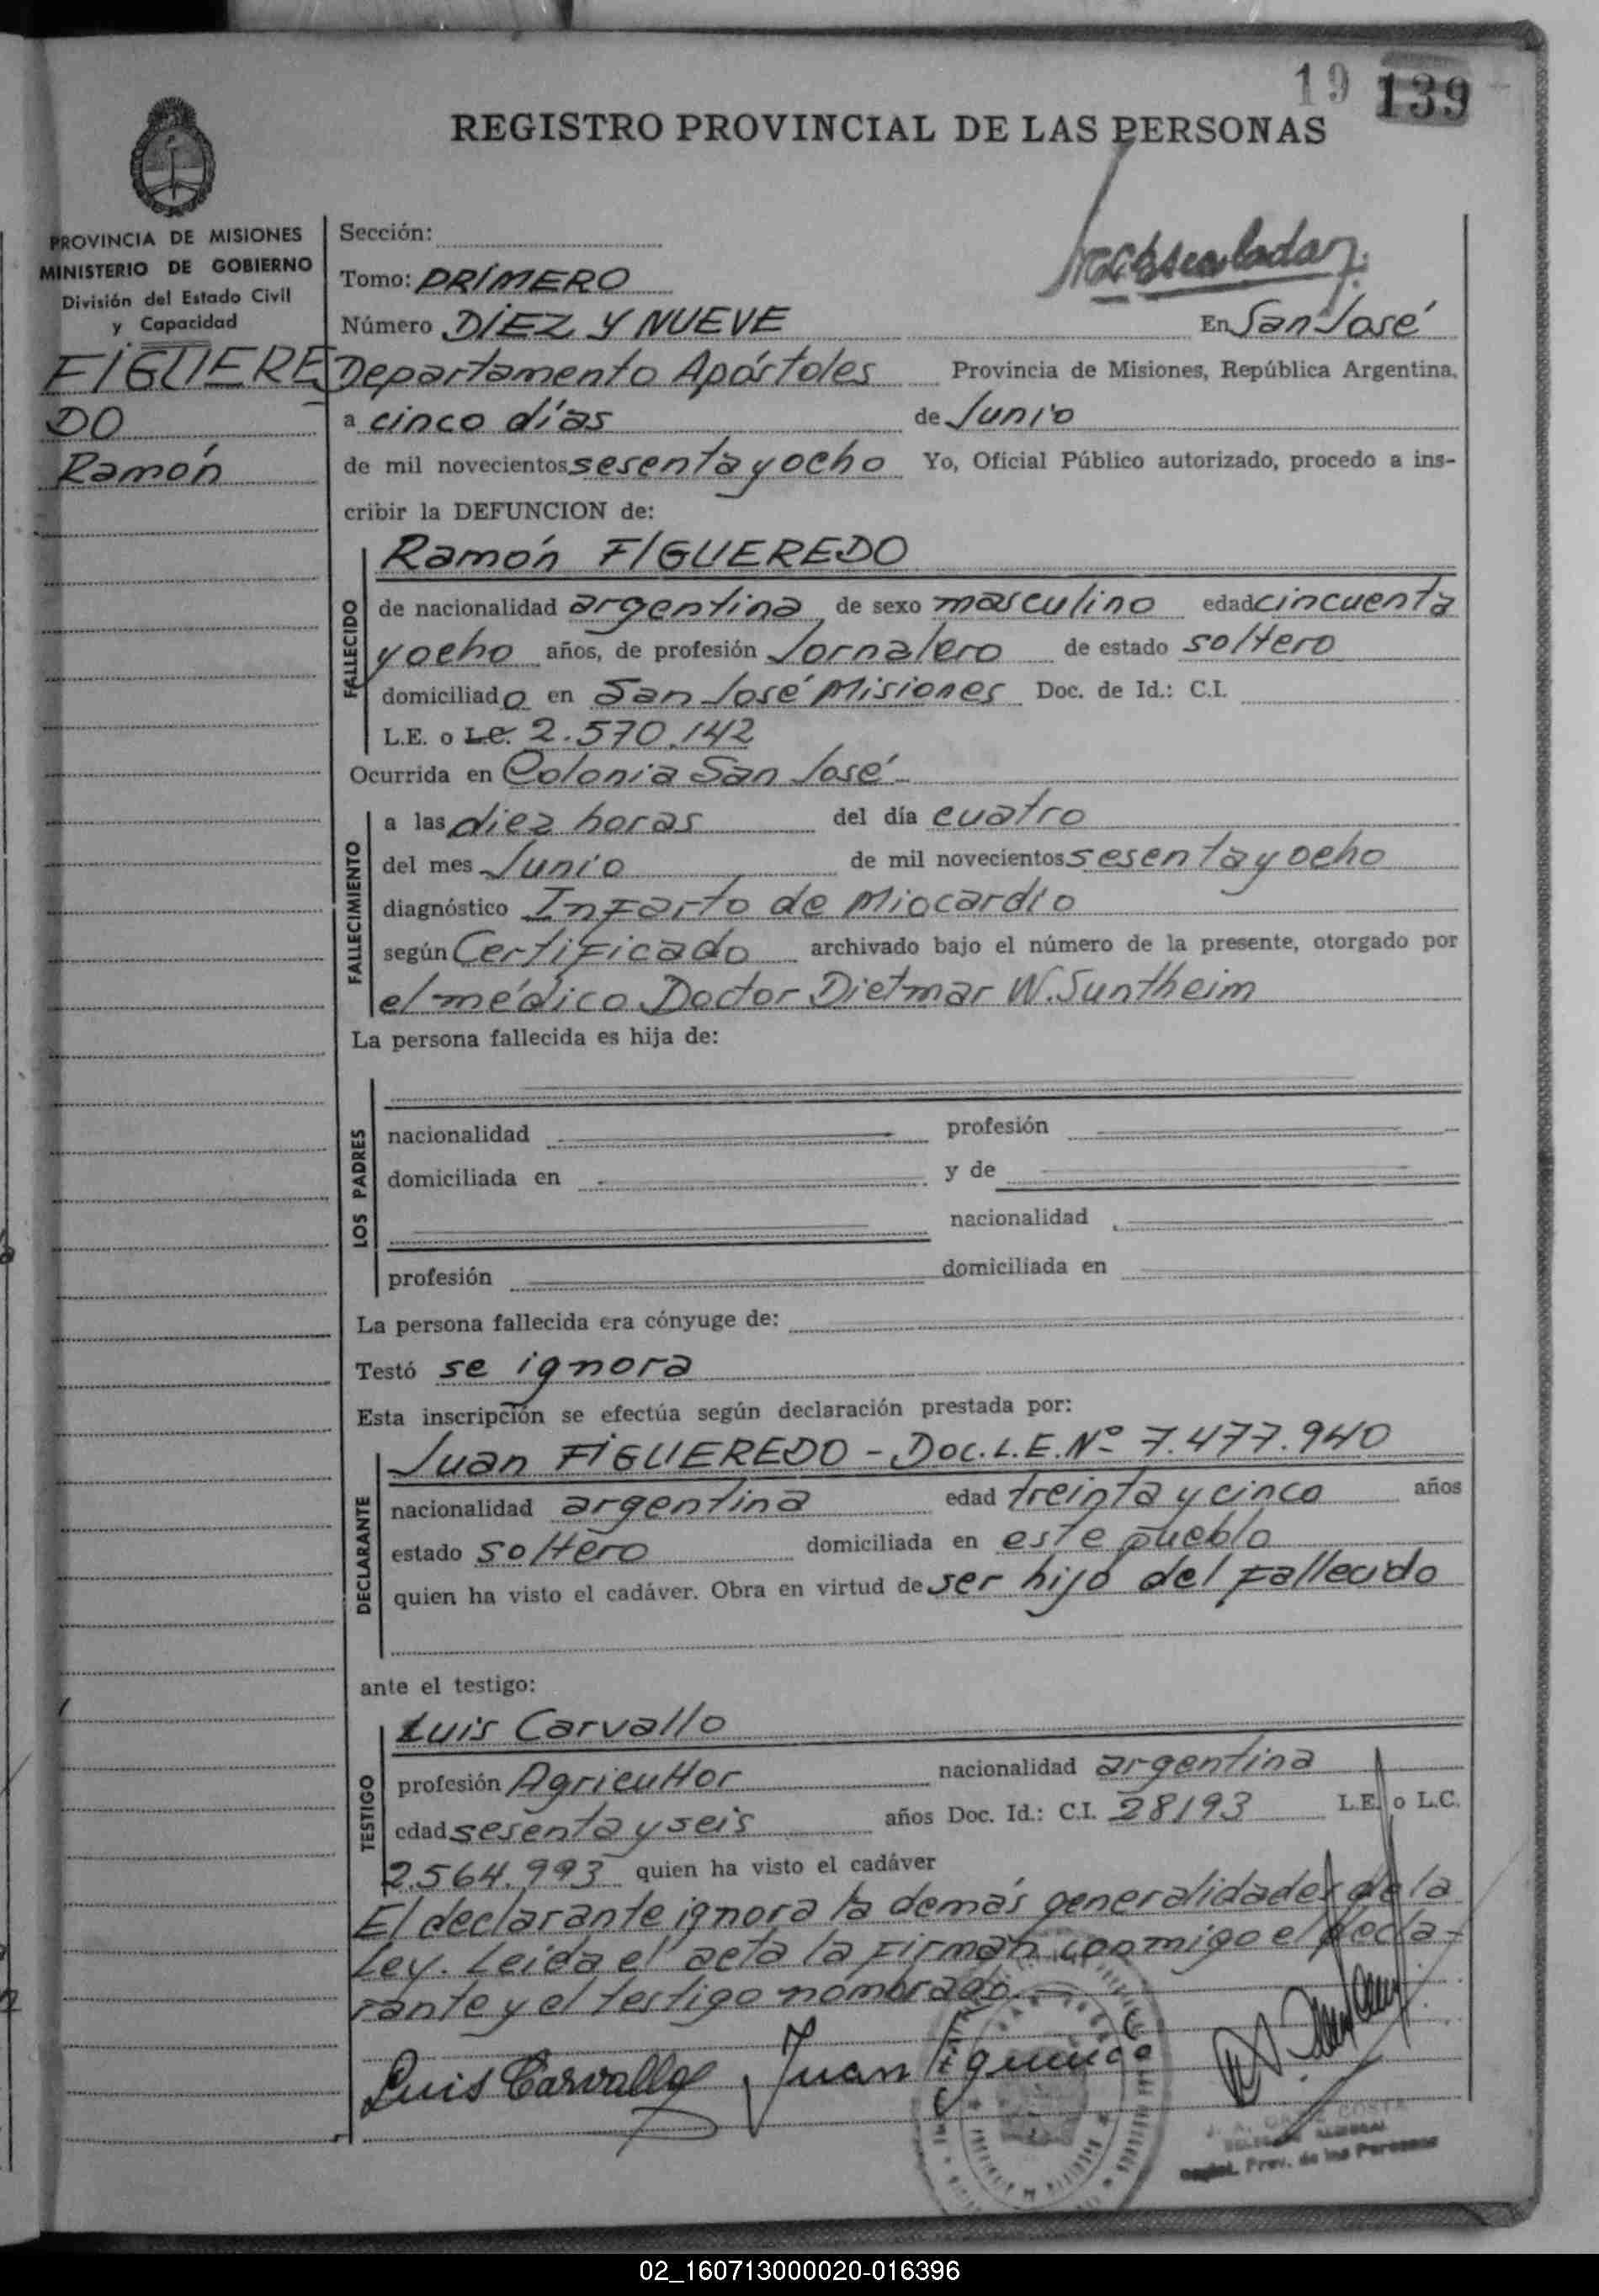 19 139
REGISTRO PROVINCIAL DE LAS PERSONAS
PROVINCIA DE MISIONES
MINISTERIO DE GOBIERNO
División del Estado Civil
y Capacidad
FIGUERE
DO
Ramón
Sección:
Tomo: PRIMERO
Número DIEZ Y NUEVE En San José
Departamento Apóstoles Provincia de Misiones, República Argentina,
a cinco días de Junio
de mil novecientos sesenta y ocho Yo, Oficial Público autorizado, procedo a ins-
cribir la DEFUNCION de:
FALLECIDO
Ramón FIGUEREDO
de nacionalidad argentina de sexo masculino edad cincuenta
y ocho años, de profesión Jornalero de estado soltero
domiciliado en San José Misiones Doc. de Id.: C.I.
L.E. o L.C. 2.570.142
Ocurrida en Colonia San José
FALLECIMIENTO
a las diez horas del día cuatro
del mes Junio de mil novecientos sesenta y ocho
diagnóstico Infarto de Miocardio
según Certificado archivado bajo el número de la presente, otorgado por
el médico Doctor Dietmar W. Suntheim
La persona fallecida es hija de:
LOS PADRES
nacionalidad profesión
domiciliada en y de
nacionalidad
profesión domiciliada en
La persona fallecida era cónyuge de:
Testó se ignora
Esta inscripción se efectúa según declaración prestada por:
DECLARANTE
Juan FIGUEREDO - Doc. L.E. Nº 7.477.940
nacionalidad argentina edad treinta y cinco años
estado soltero domiciliada en este pueblo
quien ha visto el cadáver. Obra en virtud de ser hijo del fallecido
ante el testigo:
TESTIGO
Luis Carvallo
profesión Agricultor nacionalidad argentina
edad sesenta y seis años Doc. Id.: C.I. 28193 L.E. o L.C.
2.564.993 quien ha visto el cadáver
El declarante ignora la demás generalidades de la
Ley. Leida el acta la firman conmigo el decla-
rante y el testigo nombrado.
Luis Carvallo Juan
Prov. de las Personas
02_160713000020-016396